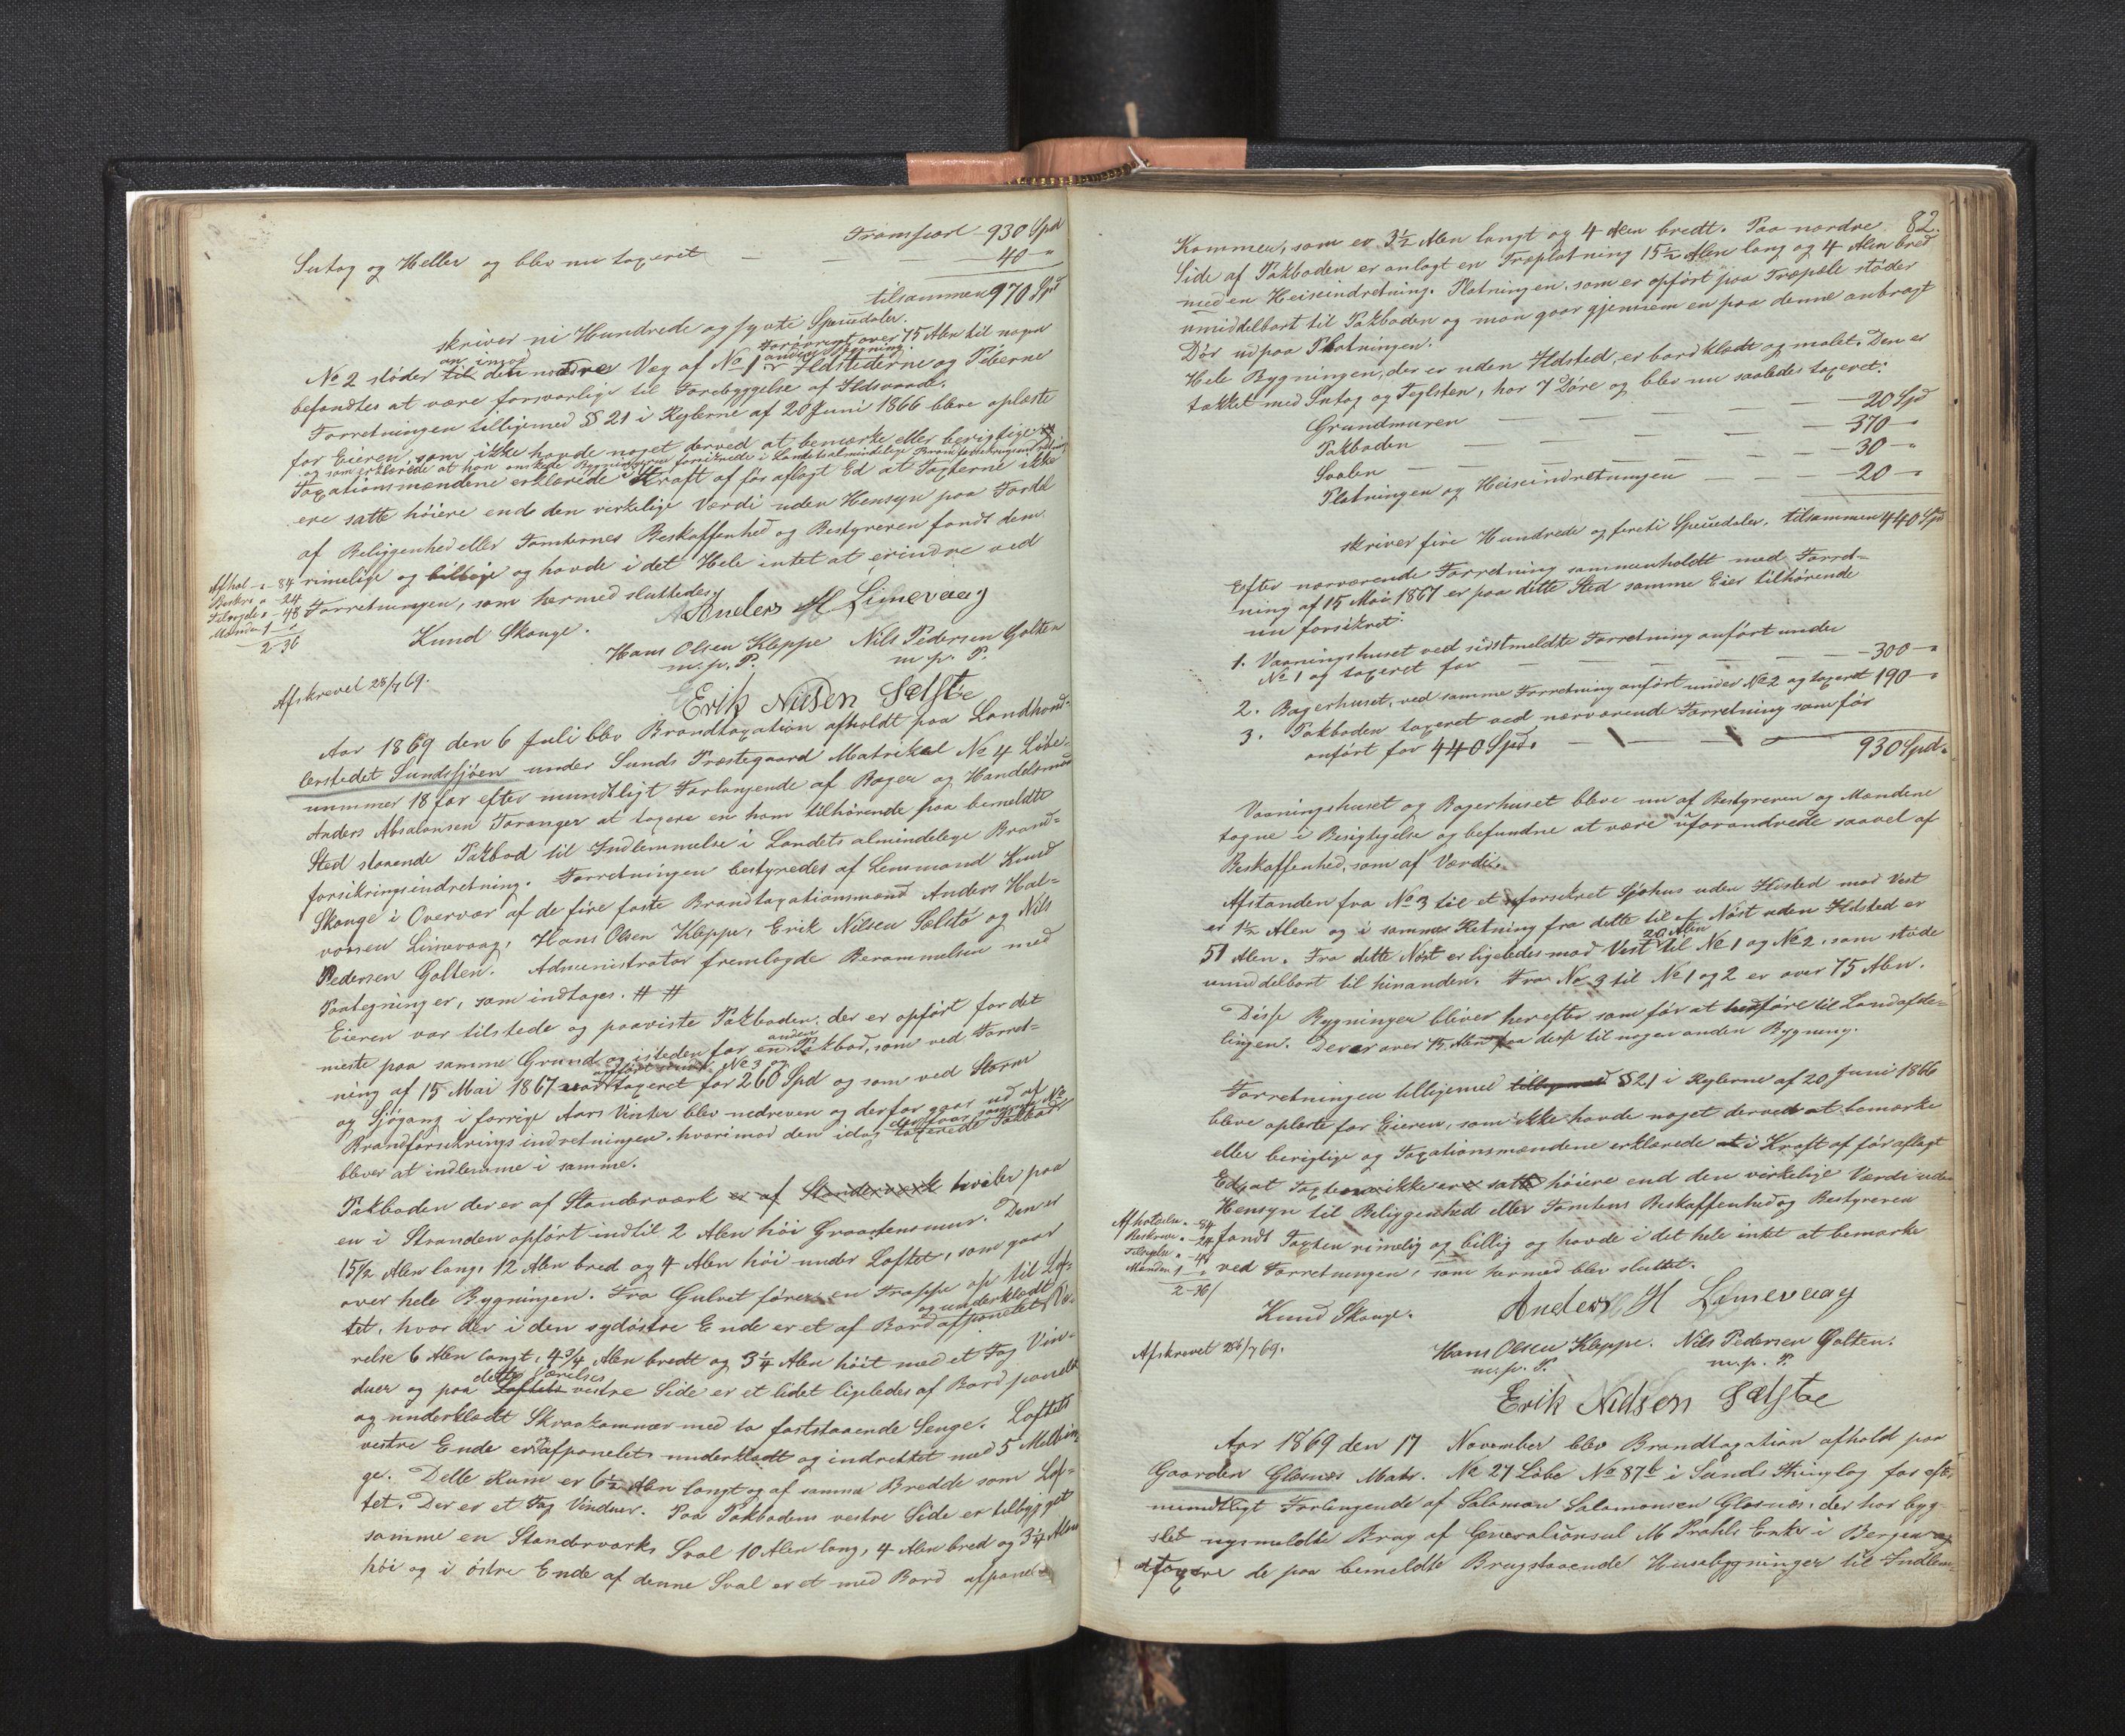 Fremført 930 Spd
Sutag og Heller og blev nu taxeret — — — 40 "
tilsammen 970 Spd
skriver ni Hundrede og sytti Speciedaler.
No 2 støder til den nordre Væg af No 1 Forøvrigt over 75 Alen til nogen
anden Bygning. Ildstederne og Piberne
befandtes at være forsvarlige til Forebyggelse af Ildsvaade.
Forretningen tilligemed §§ 21 i Reglerne af 20 Juni 1866 bleve oplæste
for Eieren, som ikke havde noget derved at bemærke eller berigtige
og som erklærede at han ønskede Bygningerne forsikrede i Landets almindelige Brandforsikringsindretning
Taxationsmændene erklærede i Kraft af før aflagt Ed at Taxterne ikke
ere satte høiere end den virkelige Værdi uden Hensyn paa Fordel
af Beliggenhed eller Tomternes Beskaffenhed og Bestyreren fandt dem
rimelige og billige og havde i det Hele intet at erindre ved
Forretningen, som hermed sluttedes.
Afhol " - 84
Beskr. " 24
Tilsigelse " - 48
Mænden 1 - "
2-36
Knud Skauge. Anders H Limevaag
Hans Olsen Kleppe Nils Pedersen Golten
m. p. P. m. p. P.
Afskrevet 28/7 69.
Erik Nielsen Sælstø
Aar 1869 den 6 Juli blev Brandtaxation afholdt paa Landhand-
lerstedet Sundssjøen under Sunds Præstegaard Matrikel No 4 Løbe-
nummer 18 før efter mundtligt Forlangende af Bager og Handelsmand
Anders Absalonsen Taranger at taxere en ham tilhørende paa bemeldte
Sted staaende Pakbod til Indlemmelse i Landets almindelige Brand-
forsikringsindretning. Forretningen bestyredes af Lensmand Knud
Skauge i Overvær af de fire faste Brandtaxationsmænd Anders Hal-
vorsen Limevaag, Hans Olsen Kleppe, Erik Nilsen Sælstø og Nils
Pedersen Golten. Administrator fremlagde Berammelsen med
Paategninger, som indtages. # #
Eieren var tilstede og paaviste Pakboden, der er opført for det
meste paa samme Grund og isteden for en anden Pakbod, som ved Forret-
ning af 15 Mai 1867 anført under No 3 og taxeret for 260 Spd og som ved Storm
og Sjøgang i forrige Aars Vinter blev nedreven og derfor gaar ud af
Brandforsikringsindretningen, hvorimod den idag taxerede Pakbod
bliver at indlemme i samme.
Pakboden der er af Standerværk er af Standerværk hviler paa
en i Stranden opført indtil 2 Alen høi Graastensmur. Den er
15 1/2 Alen lang, 12 Alen bred og 4 Alen høi under Loftet, som gaar
over hele Bygningen. Fra Gulvet fører en Trappe op til Lof-
tet, hvor der i den sydøstre Ende er et af Bord afpanelet og underklædt Væ-
relse 6 Alen langt, 4 3/4 Alen bredt og 3 1/4 Alen høit med et Fag Vin-
duer og paa dette Værelses Loftets vestre Side er et lidet ligeledes af Bord panelet
og underklædt Skraakammer med to faststaaende Senge. Loftets
vestre Ende er afpanelet, underklædt og indrettet med 5
ge. Dette Rum er 6 1/2 Alen langt og af samme Bredde som Lof-
tet. Der er et Fag Vinduer. Paa Pakbodens vestre Side er tilbygget
samme en Standerværks Sval 10 Alen lang, 4 Alen bred og 3 1/4 Alen
høi og i østre Ende af denne Sval er et med Bord afpanelet
82.
Kammer, som er 3 1/2 Alen langt og 4 Alen bredt. Paa nordre
Side af Pakboden er anlagt en Træplatning 15 1/2 Alen lang og 4 Alen bred
med en Heiseindretning. Platningen, som er opført paa Træpæle støder
umiddelbart til Pakboden og man gaar gjennem en paa denne anbragt
Dør ud paa Platningen.
Hele Bygningen, der er uden Ildsted, er bordklædt og malet. Den er
takket med Sutag og Teglsten, har 7 Døre og blev nu saaledes taxeret:
Grundmuren — — — 20 Spd
Pakboden — — — 370 — "
Svalen — — — 30 — "
Platningen og Heiseindretningen — — 20 — "
tilsammen 440 Spd
skriver fire Hundrede og fireti Speciedaler.
Efter nærværende Forretning sammenholdt med Forret-
ning af 15 Mai 1867 er paa dette Sted samme Eier tilhørende
nu forsikret:
1. Vaaningshuset ved sidstmeldte Forretning anført under
No 1 og taxeret for — — — 300 — "
2. Bagerhuset, ved samme Forretning anført under No 2 og taxeret 190 — "
3. Pakboden taxeret ved nærværende Forretning som før
anført for 440 Spd. — — —
930 Spd.
Vaaningshuset og Bagerhuset bleve nu af Bestyreren og Mændene
tagne i Besigtigelse og befundne at være uforandrede saavel af
Beskaffenhed, som af Værdi.
Afstanden fra No 3 til et uforsikret Sjøhus uden Ildsted mod Vest
er 1 1/2 Alen og i samme Retning fra dette til et Nøst uden Ildsted er
51 Alen. Fra dette Nøst er ligeledes mod Vest 20 Alen til No 1 og No 2, som støde
umiddelbart til hinanden. Fra No 3 til No 1 og 2 er over 75 Alen.
Disse Bygninger bliver herefter som før at henføre til Landafde-
lingen. Der er over 75 Alen fra disse til nogen anden Bygning.
Forretningen tilligemed tilligemed §21 i Reglerne af 20 Juni 1866
bleve oplæste for Eieren, som ikke havde noget derved at bemærke
eller berigtige og Taxationsmændene erklærede at i Kraft af før aflagt
Ed, at Taxten ikke er sat høiere end den virkelige Værdi uden
Hensyn til Beliggenhed eller Tomtens Beskaffenhed og Bestyreren
fandt Taxten rimelig og billig og havde i det hele intet at bemærke
ved Forretningen, som hermed blev sluttet.
Afholdelse " - 84
Beskriv " - 24
Tilsigelse " - 48
Mænden 1 - "
2-36
Knud Skauge. Anders H Limevaag
Afskrevet 28/7 69.
Hans Olsen Kleppe. Nils Pedersen Golten.
m. p. P. m. p. P.
Erik Nielsen Sælstø
Aar 1869 den 17 November blev Brandtaxation afhold paa
Gaarden Glesnæs Matr. No 27 Løbe No 87b i Sunds Thinglag før efter
mundtligt Forlangende af Salomon Salomonsen Glesnæs, der har byg-
slet nysmeldte Brug af Generalconsul M Prahls Enke i Bergen og
at taxere de paa bemeldte Brug staaende Husebygninger til Indlem-